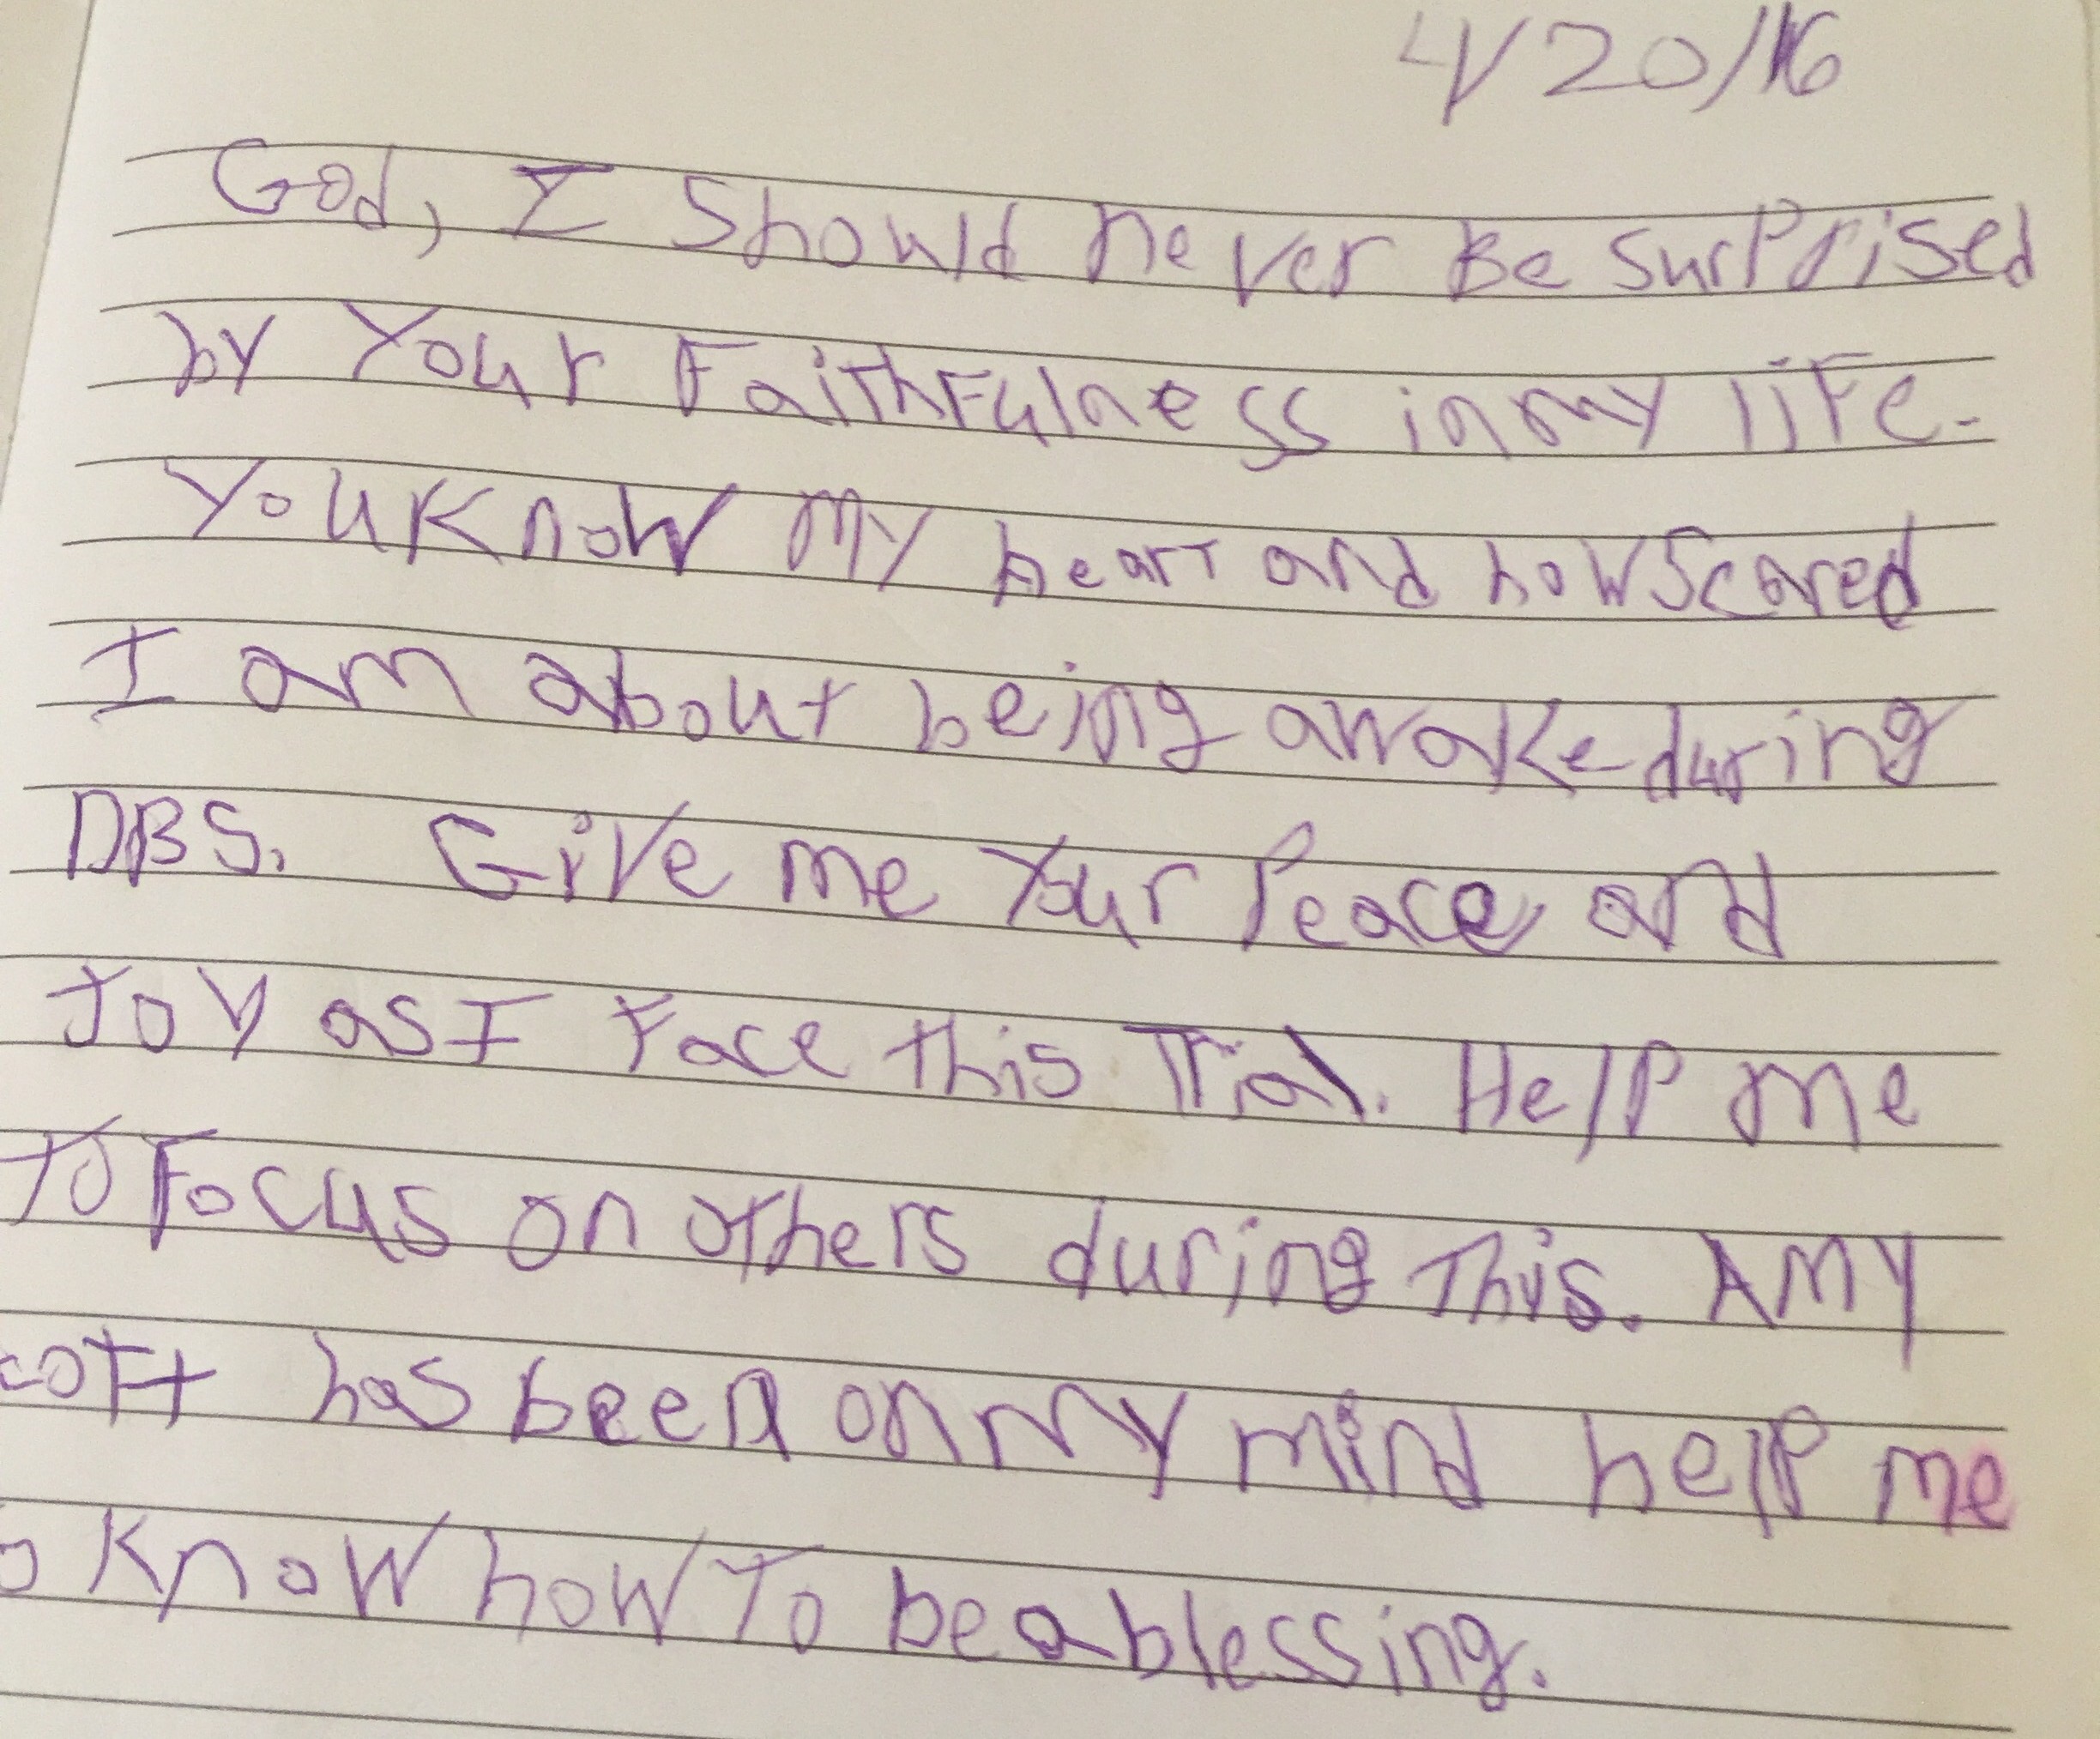 4/20/16
God, I should never Be surprised
by Your Faithfulness in my life.
You know my heart and how scared
I am about being awake during
DBS. Give me Your Peace and
Joy as I Face this Trial. Help me
to Focus on others during This. AMY
has been on my mind help me
know how To be a blessing.